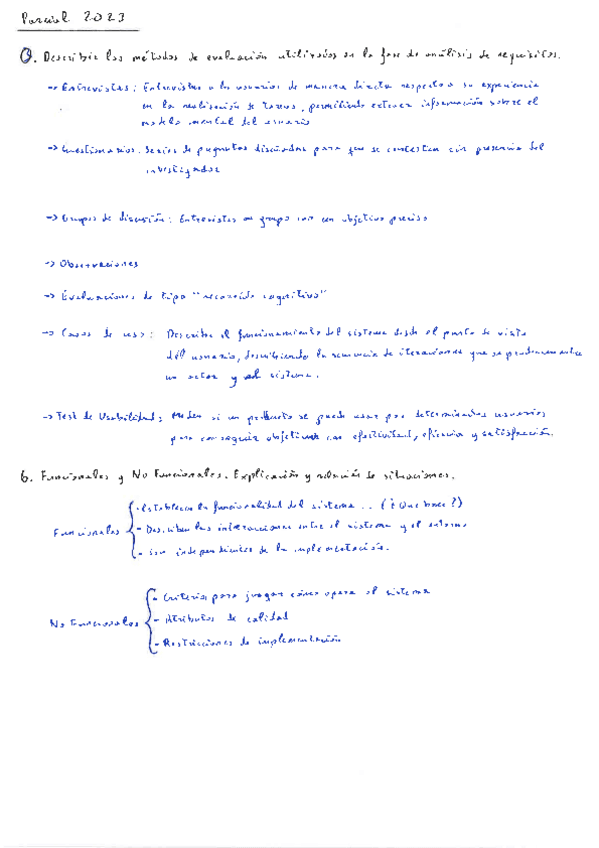 Parcial 2023
. Describir los métodos de evaluación utilizados en la fase de análisis de requisitos.
-> Entrevistas: Entrevistar a los usuarios de manera directa respecto a su experiencia
en la realización de tareas, permitiendo extraer información sobre el
modelo mental del usuario
-> Cuestionarios. Series de preguntas diseñadas para que se contesten sin presencia del
investigador
-> Grupos de discusión: Entrevistas en grupo con un objetivo preciso
-> Observaciones
-> Evaluaciones de tipo "recorrido cognitivo"
-> Casos de uso: Describe el funcionamiento del sistema desde el punto de vista
del usuario, describiendo la secuencia de iteraciones que se producen entre
un actor y el sistema.
-> Test de Usabilidad: Miden si un producto se puede usar por determinados usuarios
para conseguir objetivos con efectividad, eficiencia y satisfacción.
6. Funcionales y No Funcionales. Explicación y relación de situaciones.
- Establecen la funcionalidad del sistema .. (¿Que hace?)
Funcionales - Describen las interacciones entre el sistema y el entorno
- Son independientes de la implementación.
- Criterios para juzgar cómo opera el sistema
No Funcionales - Atributos de calidad
- Restricciones de implementación